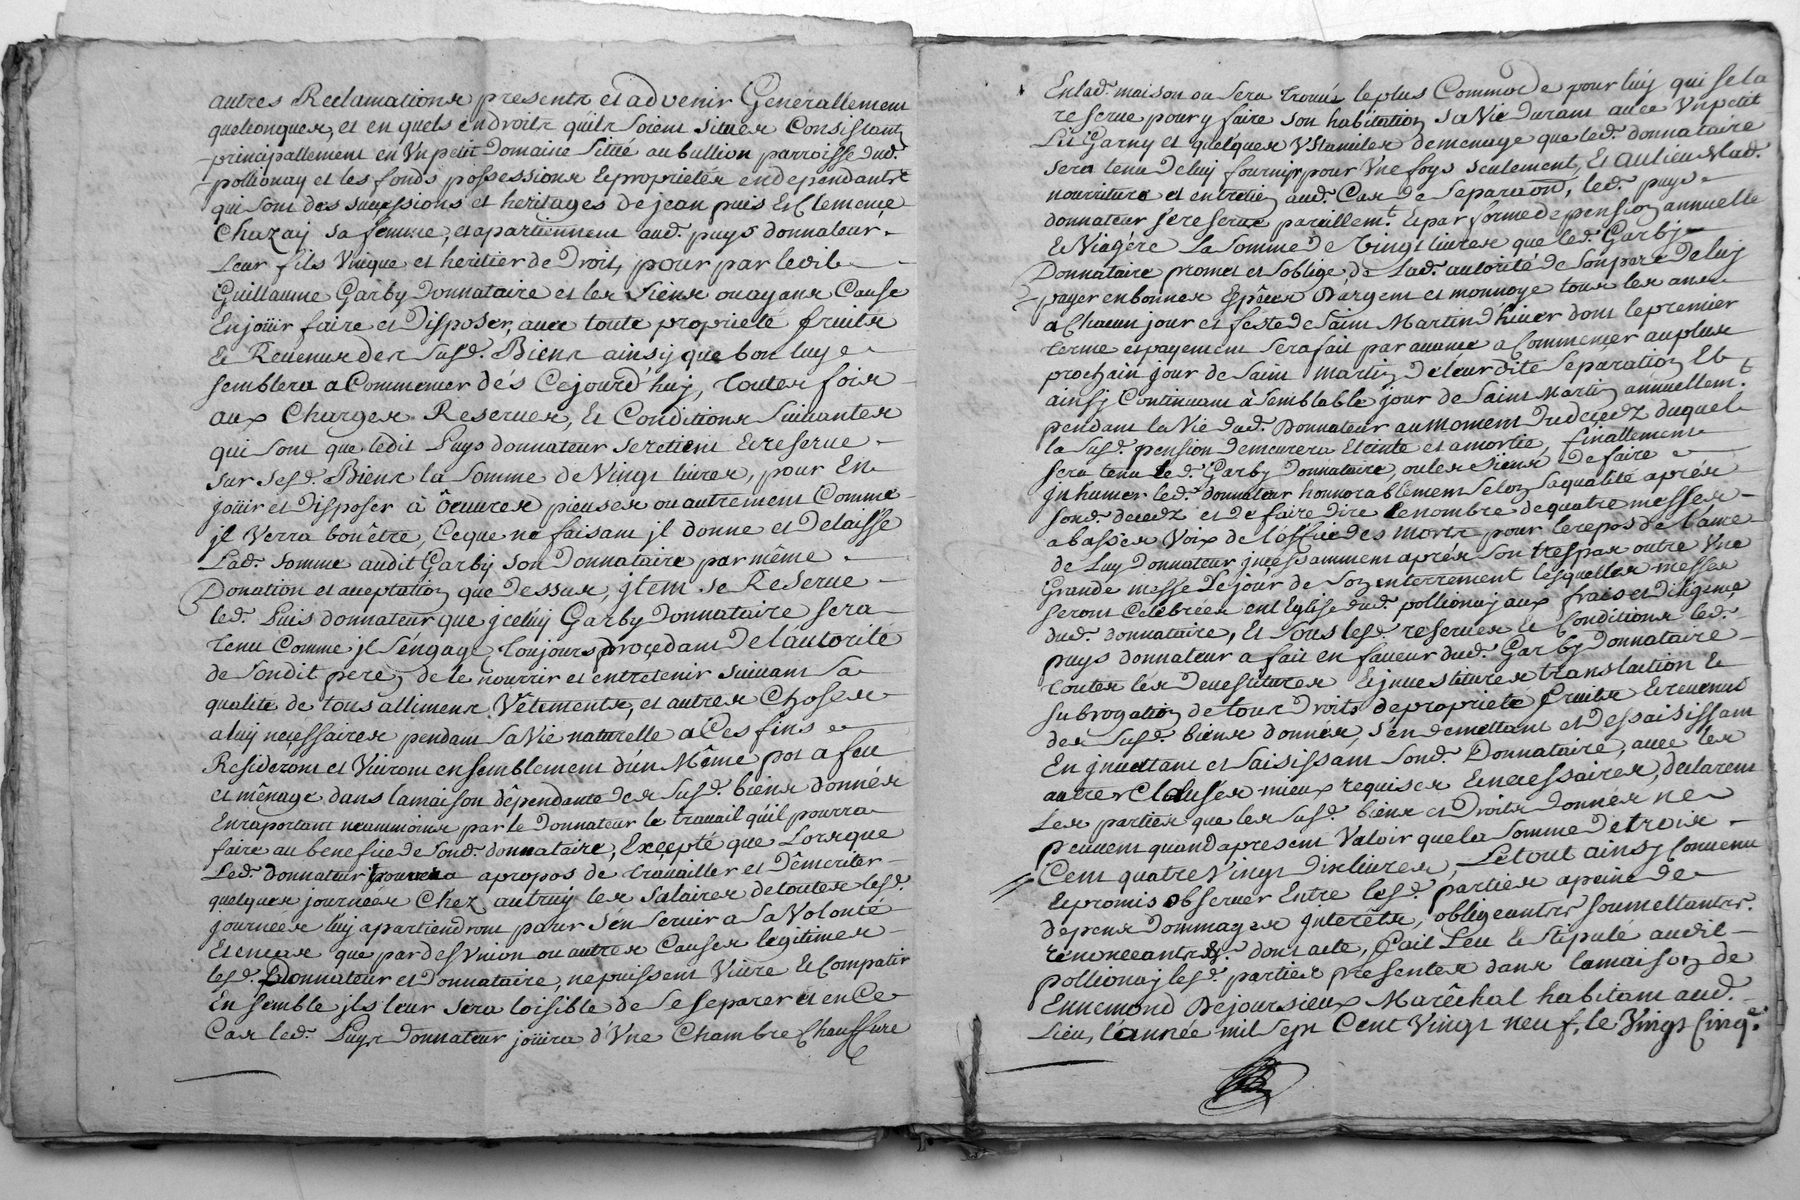 autres Reclamations presents et advenir Generallement
quelconques, et en quels endroits qu'ils soient situés Consistant
principallement en Un petit Domaine Situé au bullion parroisse dud.
pollionay et les fonds possessions & proprietés en dependants
qui sont des successions et heritages de jean puis & Clemence
Chazay sa femme, et apartiennent aud. puys donnateur
Leur fils Unique et heritier de Droit, pour par ledit
Guillaume Garby Donnataire et les siens ou ayans Cause
En joüir faire et Disposer, avec toute proprieté fruits
& Revenus des susd. Biens ainsy que bon luy
semblera a Commencer dés Cejourd'huy, toutes fois
aux Charges Reserves, & Conditions suivantes
qui sont que ledit Puys donnateur se retient & reserve
sur sesd. Biens la somme de Vingt livres, pour En
joüir et Disposer à oeuvres pieuses ou autrement Comme
jl Verra bon être, Ceque ne faisant jl donne et delaisse
Lad. somme audit Garby son Donnataire par même
Donation et acceptation que Dessus, jtem se Reserve
led. Puis donnateur que jceluy Garby Donnataire sera
tenu Comme jl s'engage toujours proçedant De l'autorité
de sondit pere, de le nourrir et entretenir suivant sa
qualité de tous alliments Vêtements, et autres Choses
a luy neçéssaires pendant sa Vie naturelle a Ces fins
Resideront et Vivront ensemblement d'un Même pot a feu
et mênage dans la maison dépendante des susd. biens donnés
En raportant neanmoins par le Donnateur le travail qu'il pourra
faire au benefice de sond. donnataire, Excepté que Lorsque
Led. donnateur trouvera apropos de travailler et Dêmeriter
quelques journées Chez autruy les salaires de toutes lesd.
journées luy apartiendront pour s'en servir a sa Volonté
Et en cas que par desunion ou autres Causes legitimes
lesd. Donnateur et Donnataire, ne puissent Vivre & Compatir
En semble jls leur sera loisible de Se Separer et en Ce
Cas led. Puys Donnateur jouira d'Une Chambre Chauffure
En lad. maison ou sera trouvé le plus Commode pour luy qui se la
reserve pour y faire son habitation sa Vie Durant avec Un petit
Lit Garny et quelques Ustanciles de menage que led. donnataire
sera tenu de luy fournir pour Une foys seulement, Et au lieu de lad.
nourriture et entretien aud. Cas de Separaon, led. puys
donnateur se reserve pareillemt. & par forme de pension annuelle
& Viagére La somme de Vingt livres que led. Garby
Donnataire promet et s'oblige de Lad. autorité de son pere de luy
payer en bonnes Espêces D'argent et monnoye tous les ans
a Chacun jour et féste de Saint Martin d'hiver dont le premier
terme et payement sera fait par avance a Commencer au plus
prochain jour de Saint Martin De leur dite Separation Et
ainsy Continuant à semblable jour de Saint Martin annuellemt.
pendant la Vie dud. Donnateur au moment du decedz duquel
la susd. pension demeurera Eteinte et amortie, finallement
sera tenu led. Garby Donnataire ou les siens, De faire
jnhumer led. donnateur honnorablement selon sa qualité après
sond. decedz et de faire dire le nombre de quatre messes
a basses Voix de l'office des Morts pour le repos de l'ame
de Luy Donnateur jncessamment aprés son trespas outre Une
Grande messe Le jour de son enterrement lesquelles messes
seront Celebrées en l'Eglise dud. pollionay aux frais et diligence
dud. donnataire, Et sous lesd. reserves & Conditions led.
puys donnateur a fait en faveur dud. Garby Donnataire
toutes les Devestitures & jnvestitures translaction &
subrogation de tous Droits de proprieté fruits & revenus
des susd. biens donnés, s'en demettant et dessaisissant
En jnvestant et saisissant sond. Donnataire, avec les
autres Clauses mieux requises & necessaires, declarent
Les parties que les susd. biens et Droits donnés ne
peuvent quand a present Valoir que la somme de trois
Cent quatre Vingt dix livres, Le tout ainsy Convenu
& promis observer Entre lesd. parties a peine de
dépens Dommages Interets, obligeants soumettants
renonceants &. dont acte, Fait Leu & stipulé audit
pollionay lesd. parties presentes dans la maison de
Ennemond Dejoursieux Marêchal habitant aud.
Lieu, l'année mil sept Cent Vingt neuf, le Vingt Cinqe.